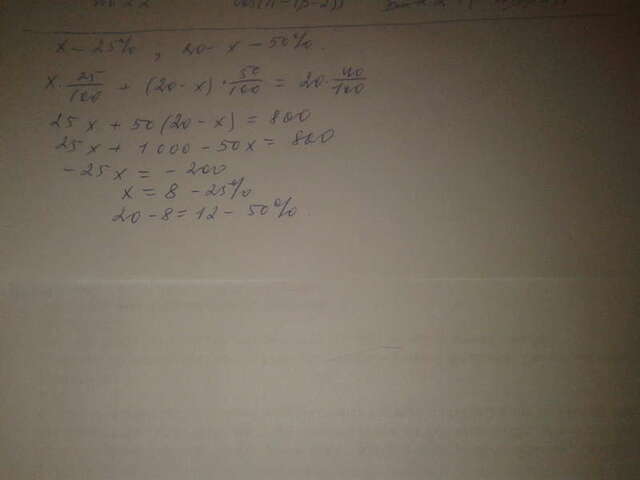 x - 25% , 20 - x - 50%.
x · 25/100 + (20 - x) · 50/100 = 20 · 40/100
25x + 50(20 - x) = 800
25x + 1000 - 50x = 800
-25x = -200
x = 8 - 25%
20 - 8 = 12 - 50%.